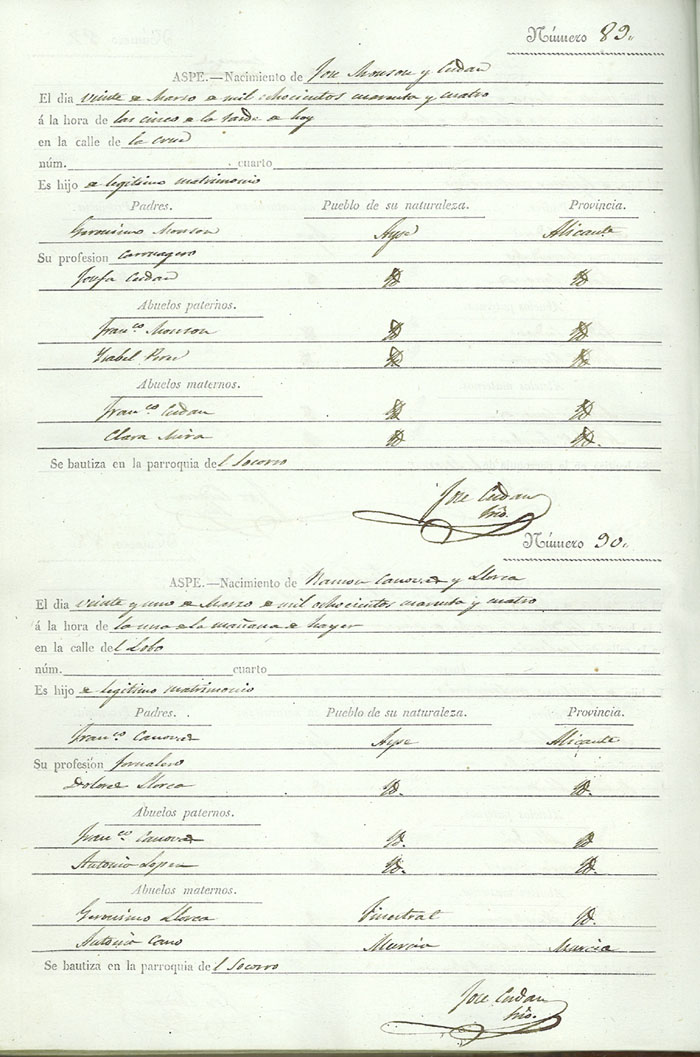 Número 89.
ASPE.—Nacimiento de Jose Monson y Cudan
El dia veinte de Marzo de mil ochocientos cuarenta y cuatro
á la hora de las cinco de la tarde de hoy
en la calle de la cruz
núm. cuarto
Es hijo de legitimo matrimonio
Padres. Pueblo de su naturaleza. Provincia.
Geronimo Monson Aspe Alicante
Su profesion
Josefa Cudan Yd Yd
Abuelos paternos.
Franco. Monson Yd Yd
Ysabel Yd Yd
Abuelos maternos.
Franco. Cudan Yd Yd
Clara Mira Yd Yd.
Se bautiza en la parroquia del Socorro
Jose Cudan
Srio.
Número 90.
ASPE.—Nacimiento de Ramon Canovas y Llorca
El dia veinte y uno de Marzo de mil ochocientos cuarenta y cuatro
á la hora de la una de la mañana de hayer
en la calle del Lobo
núm. cuarto
Es hijo de legitimo matrimonio
Padres. Pueblo de su naturaleza. Provincia.
Franco. Canovas Aspe Alicante
Su profesión Jornalero
Dolores Llorca Yd. Yd.
Abuelos paternos.
Franco Canovas Yd. Yd
Antonia Lopez Yd. Yd.
Abuelos maternos.
Geronimo Llorca Finestrat Yd.
Antonia Cano Murcia Murcia
Se bautiza en la parroquia del Socorro
Jose Cudan
Srio.